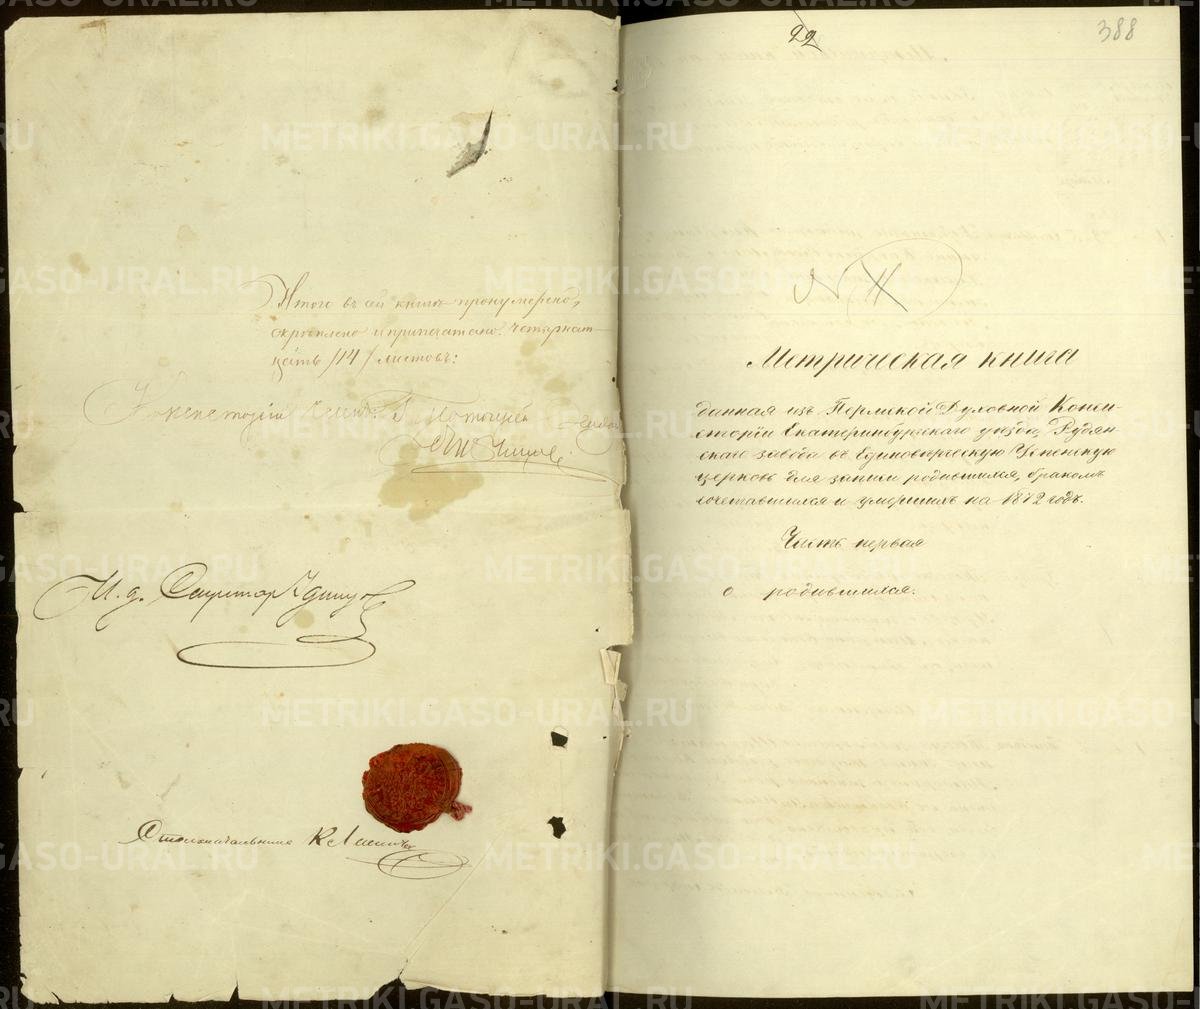 Итого въ сей книгѣ пронумеровано,
скрѣплено и припечатано четырнад-
цать /14/ листовъ:
И. д. Секретаря
Столоначальникъ К
22
388
N
Метрическая книга
данная изъ Пермской Духовной Конси-
сторіи Екатеринбургскаго уѣзда, Рудян-
скаго завода въ Единовѣрческую Успенскую
церковь для записи родившихся, бракомъ
сочетавшихся и умершихъ на 1872 годъ.
Часть первая
о родившихся.
METRIKI.GASO-URAL.RU